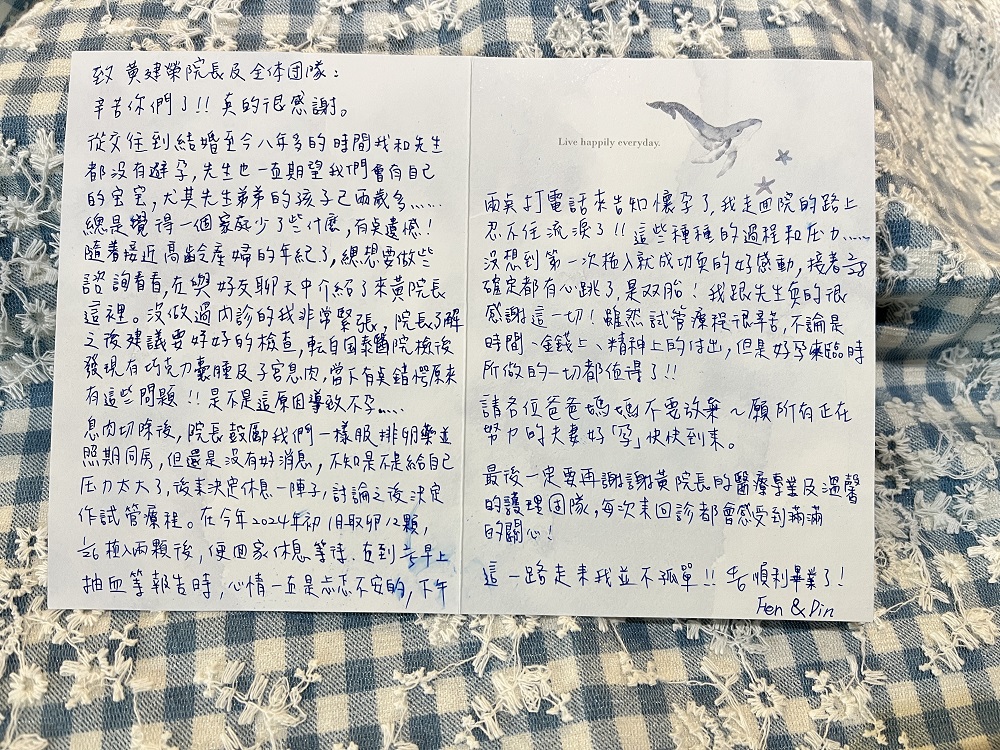 致 黃建榮院長及全体团隊：
辛苦你們了!! 真的很感謝。
從交往到結婚至今八年多的時間我和先生
都没有避孕,先生也一直期望我們會有自己
的宝宝,尤其先生弟弟的孩子已兩歲多......
總是覺得一個家庭少了些什麼,有桌遺憾!
隨著接近高齡產婦的年紀了,總想要做些
諮詢看看,在與好友聊天中介紹了來黃院長
這裡。没做過內診的我非常緊張,院長了解
之後建議要好好的檢查,転自国泰醫院檢後
發現有巧克力囊腫及子宮息肉,當下有桌錯愕原來
有這些問題!! 是不是這原因導致不孕.....
息肉切除後,院長鼓勵我們一樣服排卵藥並
照期同房,但還是没有好消息,不知是不是給自己
压力太大了,後來決定休息一陣子,討論之後決定
作試管療程。在今年2024年初1月取卵12顆,
植入兩顆後,便回家休息等待.在到 早上
抽血等報告時,心情一直是忐忑不安的,下午
Live happily everyday.
兩桌打電話來告知懷孕了,我走回院的路上
忍不住流淚了!! 這些種種的過程和压力.....
没想到第一次植入就成功真的好感動,接著
確定都有心跳了,是双胎! 我跟先生真的很
感謝這一切! 雖然試管療程很辛苦,不論是
時間、金錢上、精神上的付出,但是好孕來臨時
所做的一切都值得了!!
請各位爸爸媽媽不要放棄~願所有正在
努力的夫妻好「孕」快快到來。
最後一定要再謝謝黃院長的醫療專業及溫馨
的護理团隊,每次來回診都會感受到滿滿
的關心!
這一路走來我並不孤單!! 去順利畢業了!
Fen & Pin